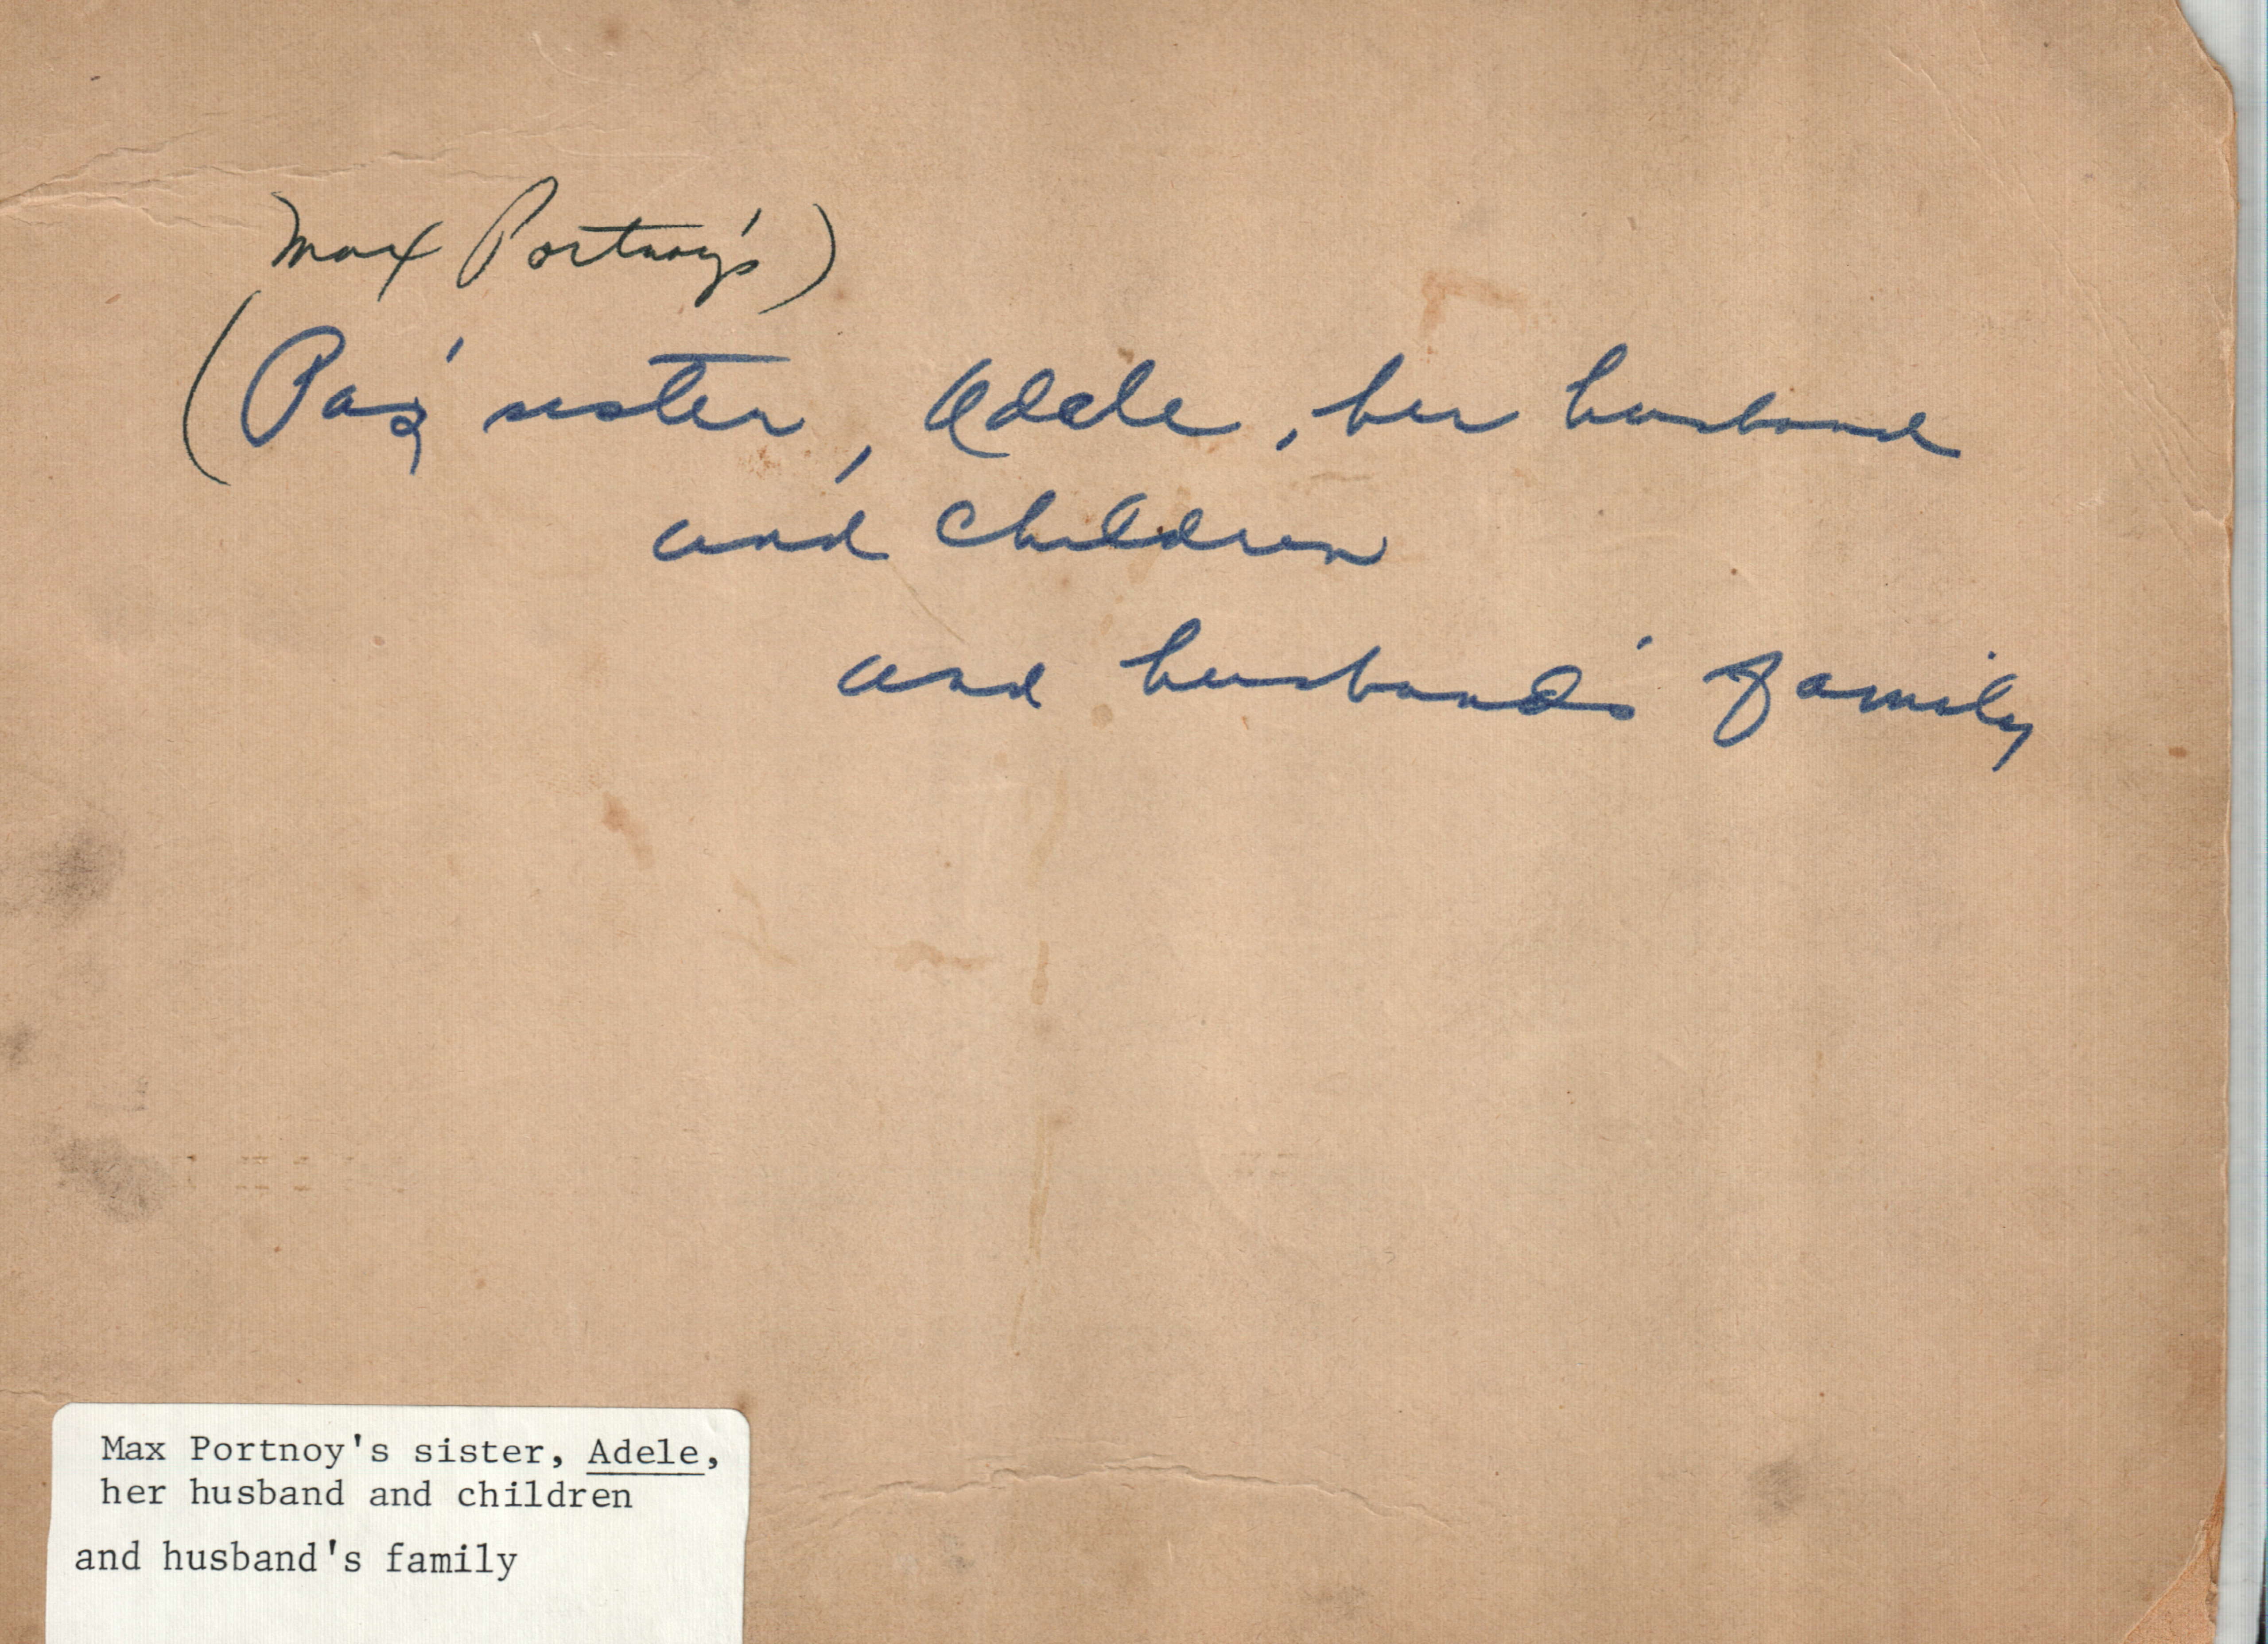 Max Portnoy's)
(Pa's sister, Adele, her husband
and children
and husband's family
Max Portnoy's sister, Adele,
her husband and children
and husband's family